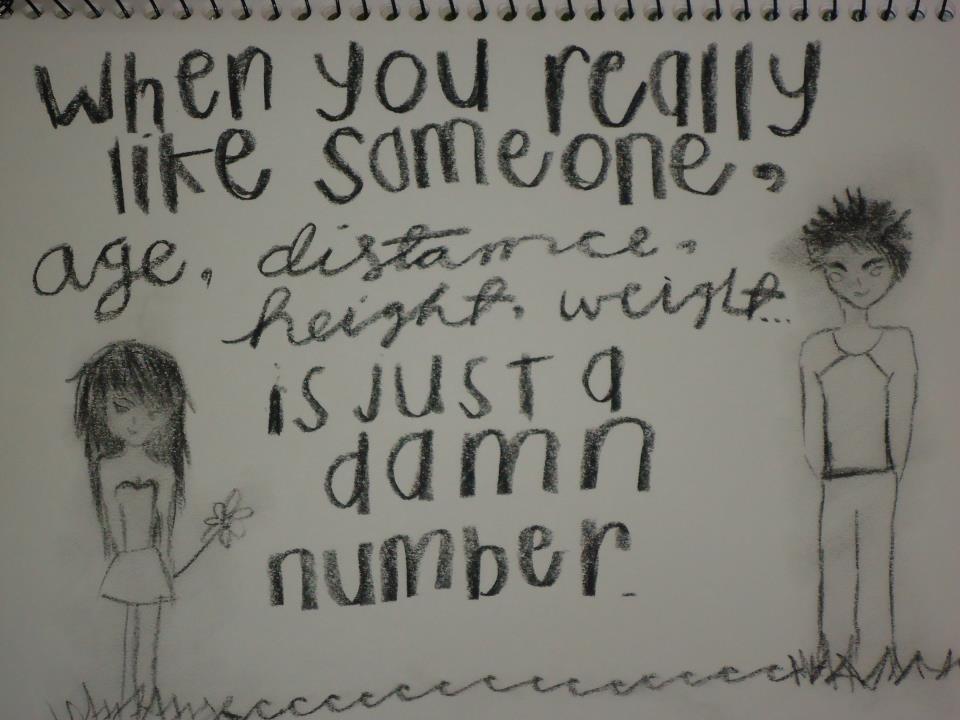 when you really
like someone,
age, distance,
height, weight...
is just a
damn
number.